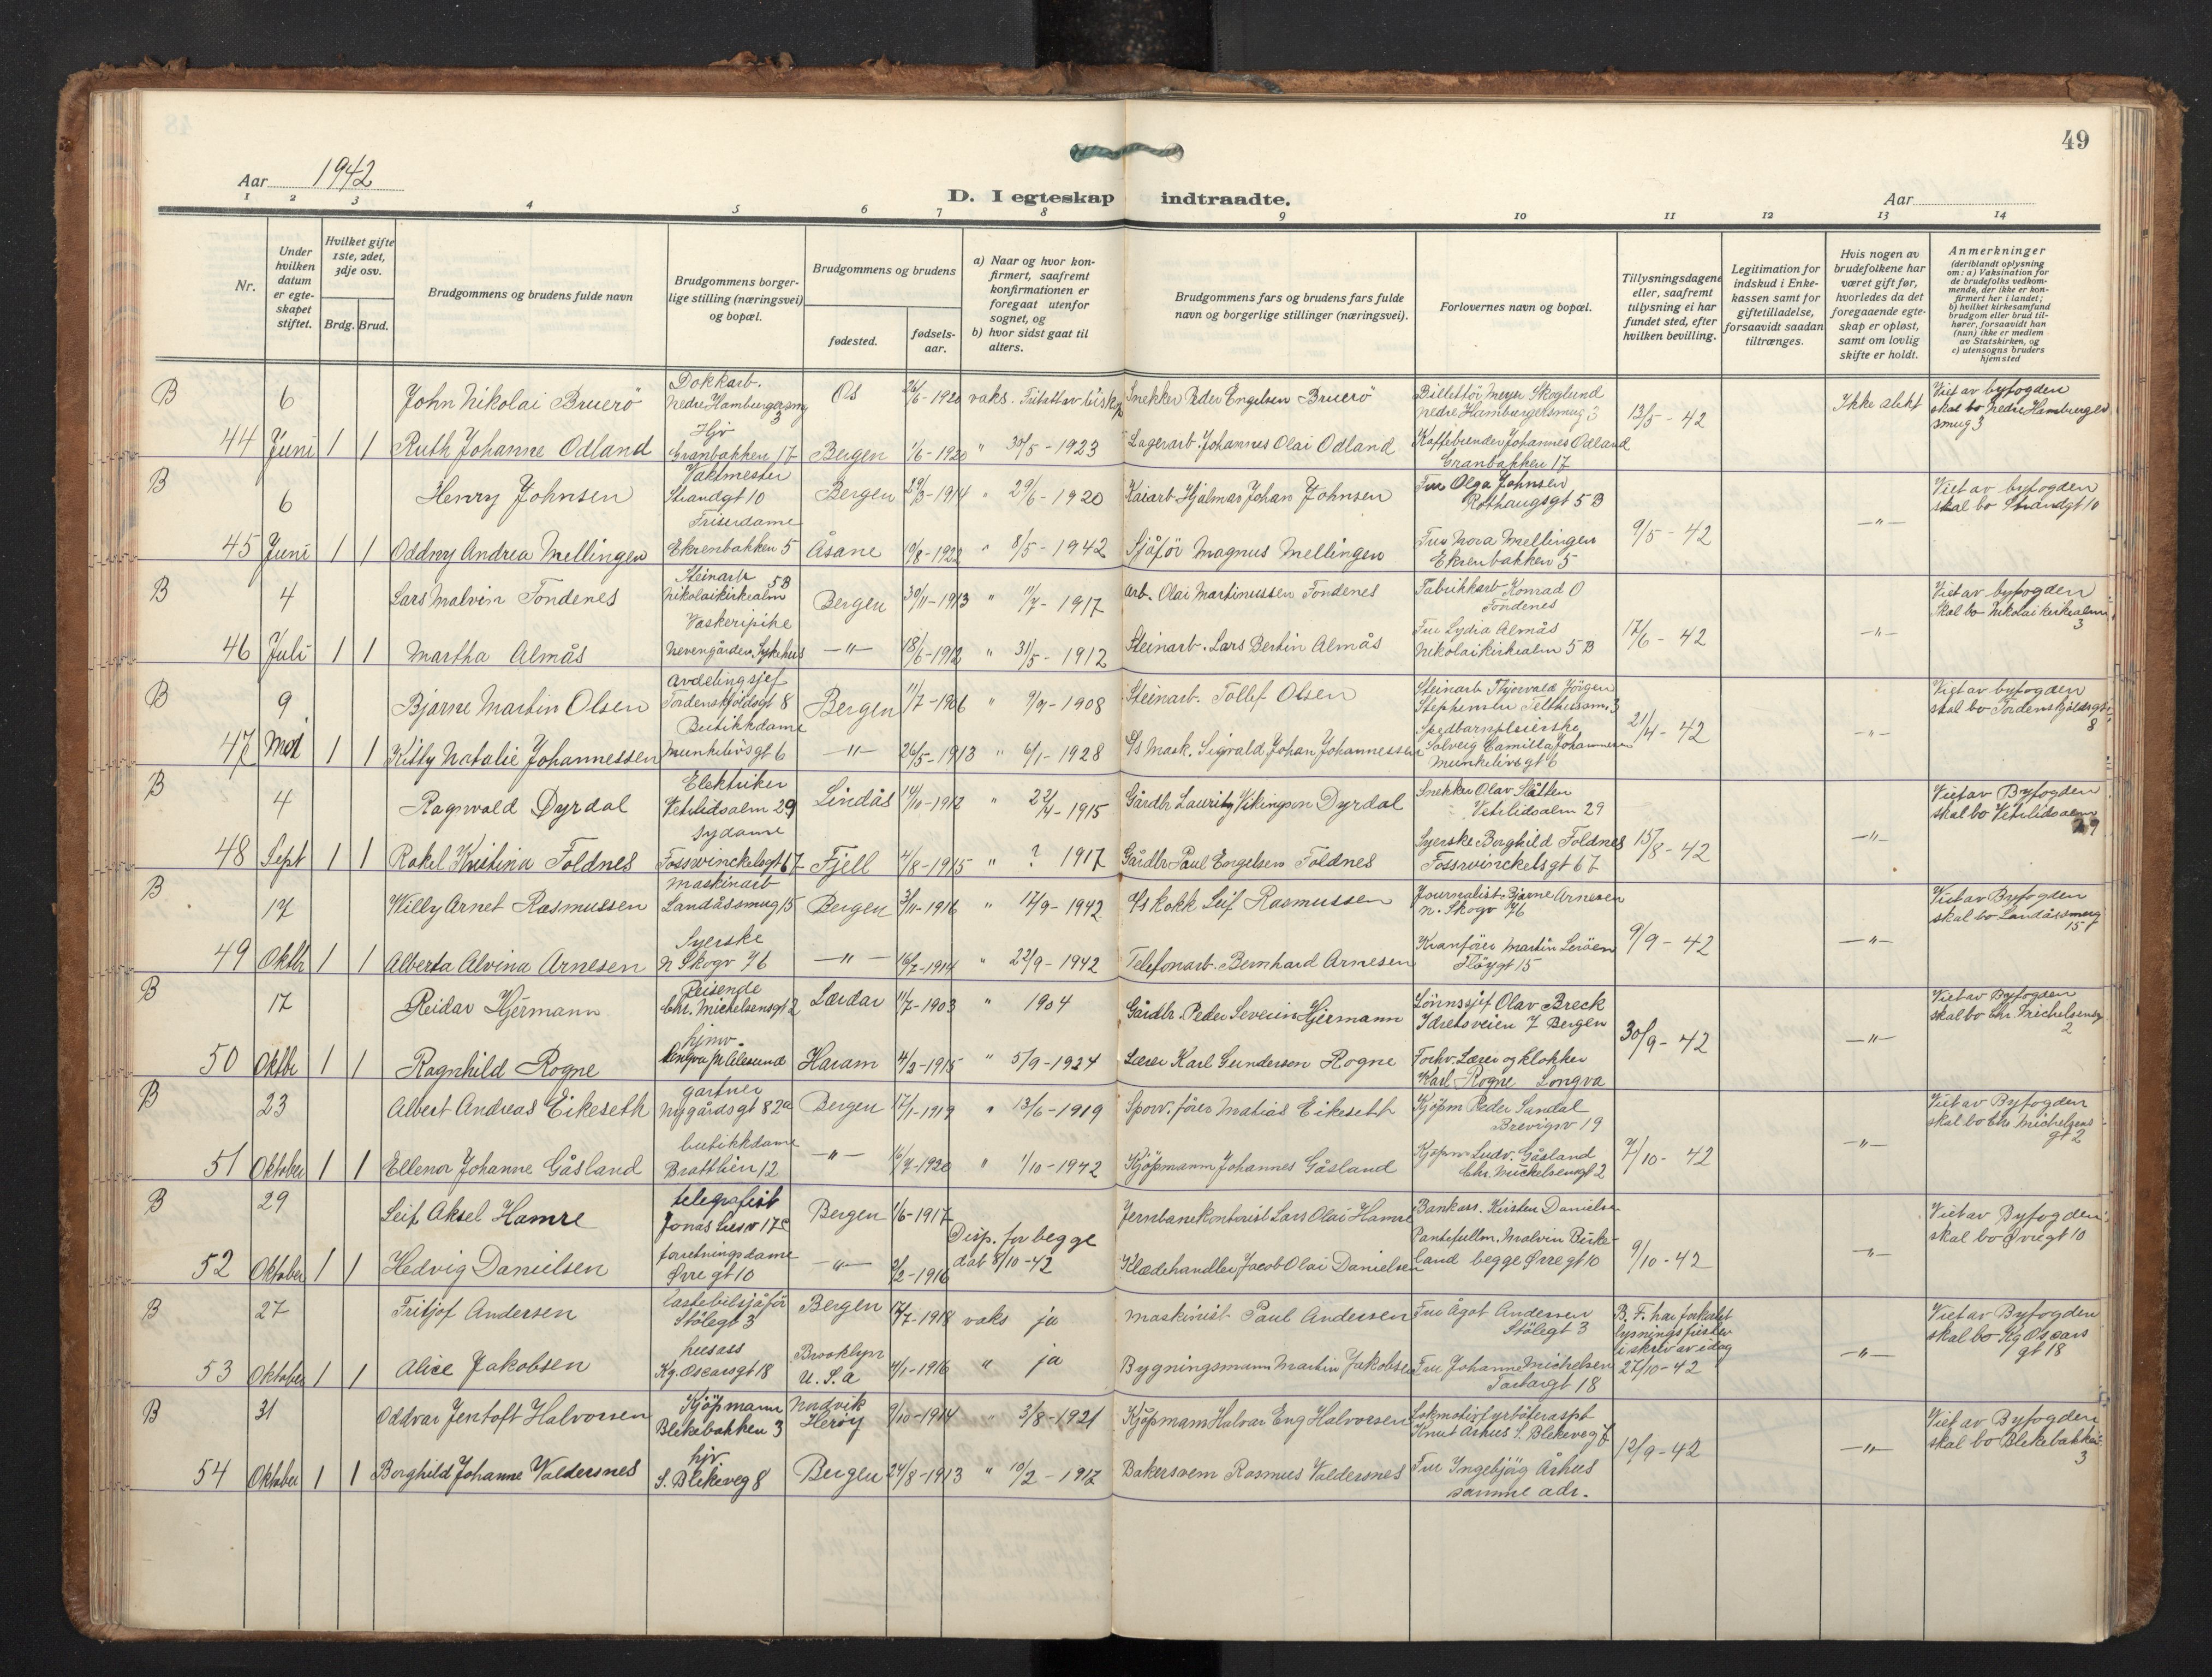 49
Aar 1942
D. I egteskap indtraadte.
Aar
1 2 3 4 5 6 7 8 9 10 11 12 13 14
Nr.
Under hvilken datum er egte-skapet stiftet.
Hvilket gifte 1ste, 2det, 3dje osv.
Brdg. Brud.
Brudgommens og brudens fulde navn
Brudgommens borger-lige stilling (næringsvei) og bopæl.
Brudgommens og brudens
fødested.
fødsels-aar.
a) Naar og hvor kon-firmert, saafremt konfirmationen er foregaat utenfor sognet, og
b) hvor sidst gaat til alters.
Brudgommens fars og brudens fars fulde navn og borgerlige stillinger (næringsvei).
Forlovernes navn og bopæl.
Tillysningsdagene eller, saafremt tillysning ei har fundet sted, efter hvilken bevilling.
Legitimation for indskud i Enke-kassen samt for giftetilladelse, forsaavidt saadan tiltrænges.
Hvis nogen av brudefolkene har været gift før, hvorledes da det foregaaende egte-skap er opløst, samt om lovlig skifte er holdt.
Anmerkninger
(deriblandt oplysning om: a) Vaksination for de brudefolks vedkom-mende, der ikke er kon-firmert her i landet; b) hvilket kirkesamfund brudgom eller brud til-hører, forsaavidt han (hun) ikke er medlem av Statskirken, og c) utensogns bruders hjemsted
B 6 John Nikolai Bruerö Dokkarb. Nedre Hamburgersmg 3 Os 26/6-1920 vaks. Snekker Peder Engelsen Bruerö Billettör Meyer Skoglund Nedre Hamburgersmug 3 13/5-42 Ikke slekt Viet av byfogden skal bo Nedre Hamburger smug 3
44 Juni 1 1 Ruth Johanne Odland Hjv Granbakken 17 Bergen 1/6-1920 " 30/5-1923 Lagerarb. Johannes Olai Odland Kaffebrender Johannes Odland Granbakken 17
B 6 Henry Johnsen Vaktmester Strandgt 10 Bergen 29/3-1914 " 29/6-1920 Kaiarb Hjalmar Johan Johnsen Fru Olga Johnsen Rothaugsgt 5 B 9/5-42 -"- Viet av byfogden skal bo Strandgt 10
45 Juni 1 1 Oddny Andrea Mellingen Friserdame Ekrenbakken 5 Åsane 10/8-1922 " 8/5-1942 Sjåför Magnus Mellingen Fru Nora Mellingen Ekrenbakken 5
B 4 Lars Malvin Tondenes Steinarb Nikolaikirkealm 5 B Bergen 30/11-1913 " 11/7-1917 Arb. Olai Martinussen Tondenes Fabrikkarb Konrad O Tondenes 17/6-42 -"- Viet av byfogden Skal bo Nikolaikirkealm 3
46 Juli 1 1 Martha Almås Vaskeripike Nevengården Sykehus -"- 18/6-1912 " 31/5-1912 Steinarb. Lars Bertin Almås Fru Lydia Almås Nikolaikirkealm 5 B
B 9 Bjarne Martin Olsen avdelingsjef Tordenskjoldsgt 8 Bergen 11/7-1906 " 9/9-1908 Steinarb. Tollef Olsen Steinarb Thorvald Jörgen Stephensen 3 21/4-42 -"- Viet av byfogden skal bo Tordenskjoldsgt 8
47 Mai 1 1 Kitty Natalie Johannessen Butikkdame Munkelivsgt 6 -"- 26/5-1913 " 6/1-1928 S/s Mask. Sigvald Johan Johannessen Spedbarnpleierske Solveig Camilla Johannessen Munkelivsgt 6
B 4 Ragnvald Dyrdal Elektriker Vetrlidsalm 29 Lindås 14/10-1912 " 22/4-1915 Gårdbr Lauritz Vikingson Dyrdal Snekker Olav Slåtten Vetrlidsalm 29 15/8-42 -"- Viet av Byfogden skal bo Vetrlidsalm 29
48 Sept 1 1 Rakel Kristina Foldnes Sydame Fosswinckelsgt 67 Fjell 4/8-1915 " ? 1917 Gårdbr Paul Engelsen Foldnes Syerske Borghild Foldnes Fosswinckelsgt 67
B 17 Willy Arnet Rasmussen Maskinarb Landåssmug 15 Bergen 3/11-1916 " 17/9-1942 S/s kokk Leif Rasmussen Journalist Bjarne Arnesen N. Skogv 76 9/9-42 -"- Viet av Byfogden skal bo Landåssmug 15
49 Oktbr 1 1 Alberta Alvina Arnesen Syerske N Skogv 76 -"- 16/7-1914 " 22/9-1942 Telefonarb. Bernhard Arnesen Kranförer Martin Leröen Flöygt 15
B 17 Reidar Hjermann Reisende Chr. Michelsensgt 2 Lærdal 11/7-1903 " 1904 Gårdbr. Peder Severin Hjermann Lönnssjef Olav Breck Idretsveien 7 Bergen 30/9-42 -"- Viet av Byfogden skal bo Chr. Michelsensg 2
50 Oktbr 1 1 Ragnhild Rogne hjmv. Longva pr Ålesund Haram 4/3-1915 " 5/9-1924 Lærer Karl Gunderson Rogne Forhv. Lærer og klokker Karl Rogne Longva
B 23 Albert Andreas Eikeseth gartner Nygårdsgt 82a Bergen 17/1-1919 " 13/6-1919 Sporv. förer Matias Eikeseth Kjöpm Peder Sandal Brevigsv 19 7/10-42 -"- Viet av Byfogden skal bo Chr Michelsens gt 2
51 Oktober 1 1 Ellenor Johanne Gåsland butikkdame Brattlien 12 -"- 6/7-1920 " 1/10-1942 Kjöpmann Johannes Gåsland Kjöpm Ludv. Gåsland Chr. Mickelsensgt 2
B 29 Leif Aksel Hamre telegrafist Jonas Liesv 17c Bergen 1/6-1917 Disp. for begge dat 8/10-42 Jernbanekontorist Lars Olai Hamre Bankass. Kirsten Danielsen 9/10-42 -"- Viet av Byfogden skal bo Øvregt 10
52 Oktober 1 1 Hedvig Danielsen forretningsdame Øvregt 10 -"- 2/2-1916 Klædehandler Jacob Olai Danielsen Pantefullm. Malvin Birke-land begge Øvregt 10
B 27 Fritjof Andersen Lastebilsjåför Stölegt 3 Bergen 17/7-1918 vaks ja Maskinist Paul Andersen Fru Ågot Andersen Stölegt 3 B. F. har forkortet lysningsfristen i skriv av idag 27/10-42 -"- Viet av Byfogden skal bo Kg Oscars gt 18
53 Oktober 1 1 Alice Jakobsen husass Kg. Oscarsgt 18 Brooklyn U.S.A 4/1-1916 " ja Bygningsmann Martin Jakobsen Fru Johanne Michelsen Tartargt 18
B 31 Oddvar Jentoft Halvorsen Kjöpmann Blekebakken 3 Nordvik Heröy 9/10-1914 " 3/8-1921 Kjöpmann Halvar Eng Halvorsen Lokmotivfyrböteraspt Knut Århus S. Blekeveg 8 12/9-42 -"- Viet av Byfogden skal bo Blekebakken 3
54 Oktober 1 1 Borghild Johanne Valdersnes hjv S. Blekeveg 8 Bergen 24/8-1913 " 10/2-1917 Bakersvenn Rasmus Valdersnes Fru Ingebjörg Århus samme adr.